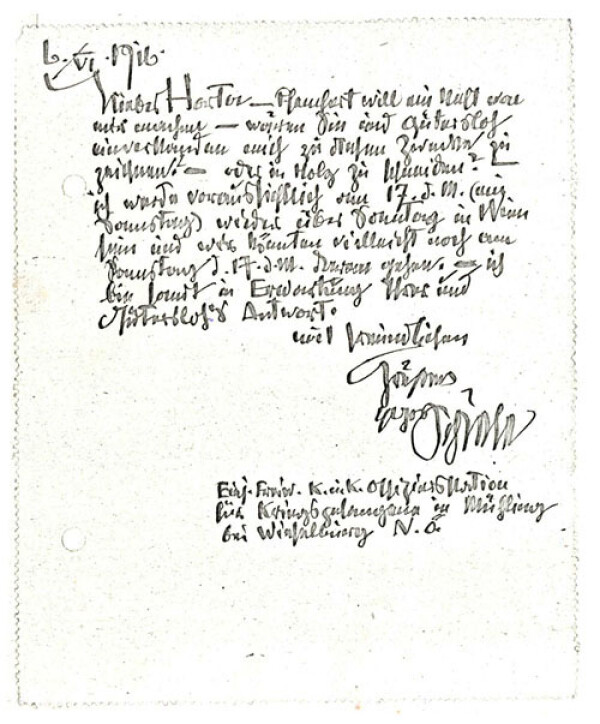 6. VI. 1916.
Lieber Harta – Pfemfert will ein Heft von
mir machen – wären Sie und Gütersloh
einverstanden mich zu diesem Zwecke zu
zeichnen? – oder in Holz zu schneiden?
ich werde voraussichtlich am 17. d. M. (ein
Samstag) wieder über Sonntag in Wien
sein und wir könnten vielleicht noch am
Samstag d. 17. d. M. daran gehen. – ich
bin somit in Erwartung Ihrer und
Gütersloh's Antwort.
viel freundlichen
Grüßen
Schiele
Einj. Freiw. K. u. K. Offiziersstation
für Kriegsgefangene in Mühling
bei Wieselburg N. Ö.